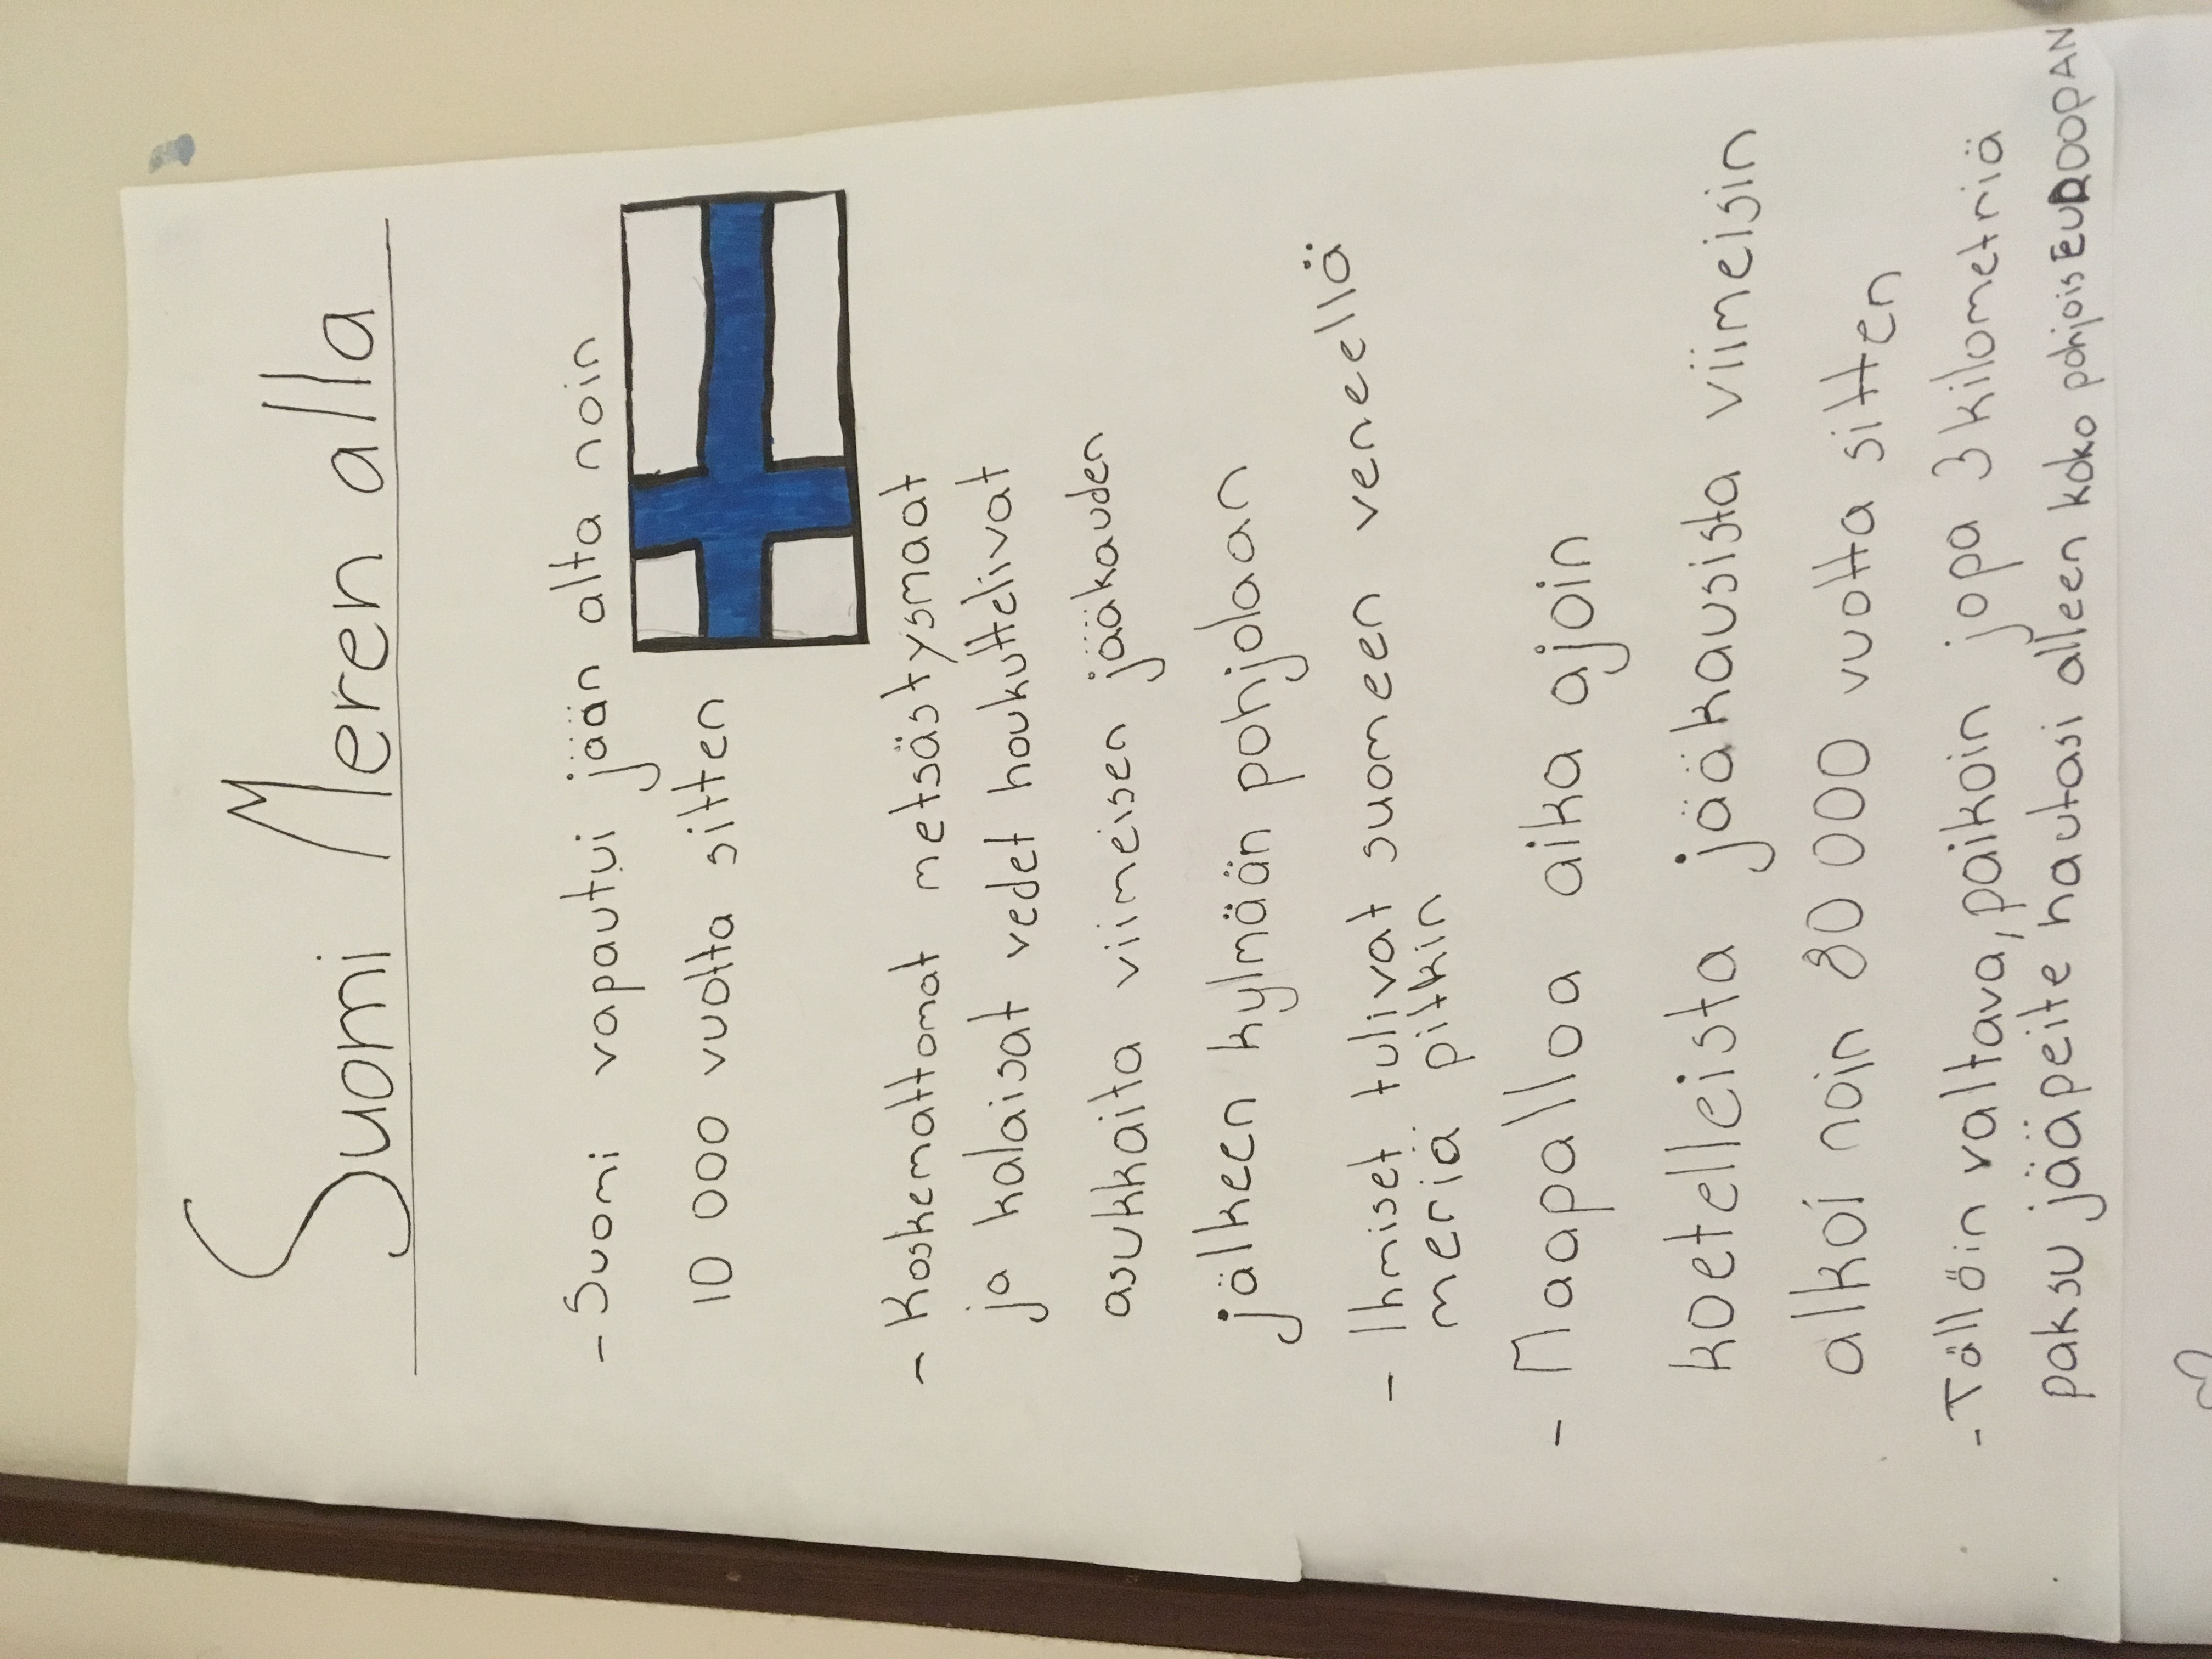 Suomi Meren alla
- Suomi vapautui jään alta noin
10 000 vuotta sitten
- Koskemattomat metsästysmaat
ja kalaisat vedet houkuttelivat
asukkaita viimeisen jääkauden
jälkeen kylmään pohjolaan
- Ihmiset tulivat suomeen veneellä
meriä pitkin
- Maapalloa aika ajoin
koetelleista jääkausista viimeisin
alkoi noin 80 000 vuotta sitten
- Tällöin valtava, paikoin jopa 3 kilometriä
paksu jääpeite hautasi alleen koko pohjoisEUROOPAN